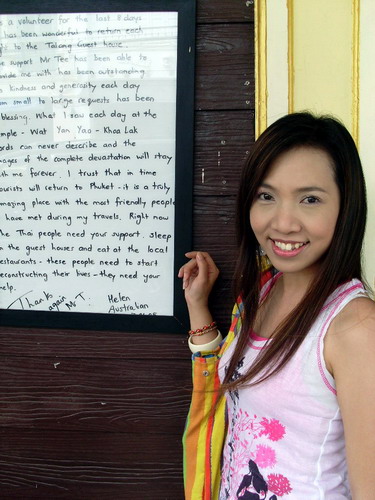 a volunteer for the last 8 days
has been wonderful to return each
to the Talang Guest house.
support Mr Tee has been able to
me with has been outstanding
kindness and generosity each day
small to large requests has been
blessing. What I saw each day at the
- Wat Yan Yao - Khao Lak
can never describe and the
of the complete devastation will stay
me forever. I trust that in time
will return to Phuket - it is a truly
place with the most friendly people
have met during my travels. Right now
Thai people need your support. Sleep
the guest houses and eat at the local
- these people need to start
their lives - they need your
Thanks again Mr T.
Helen
Australian